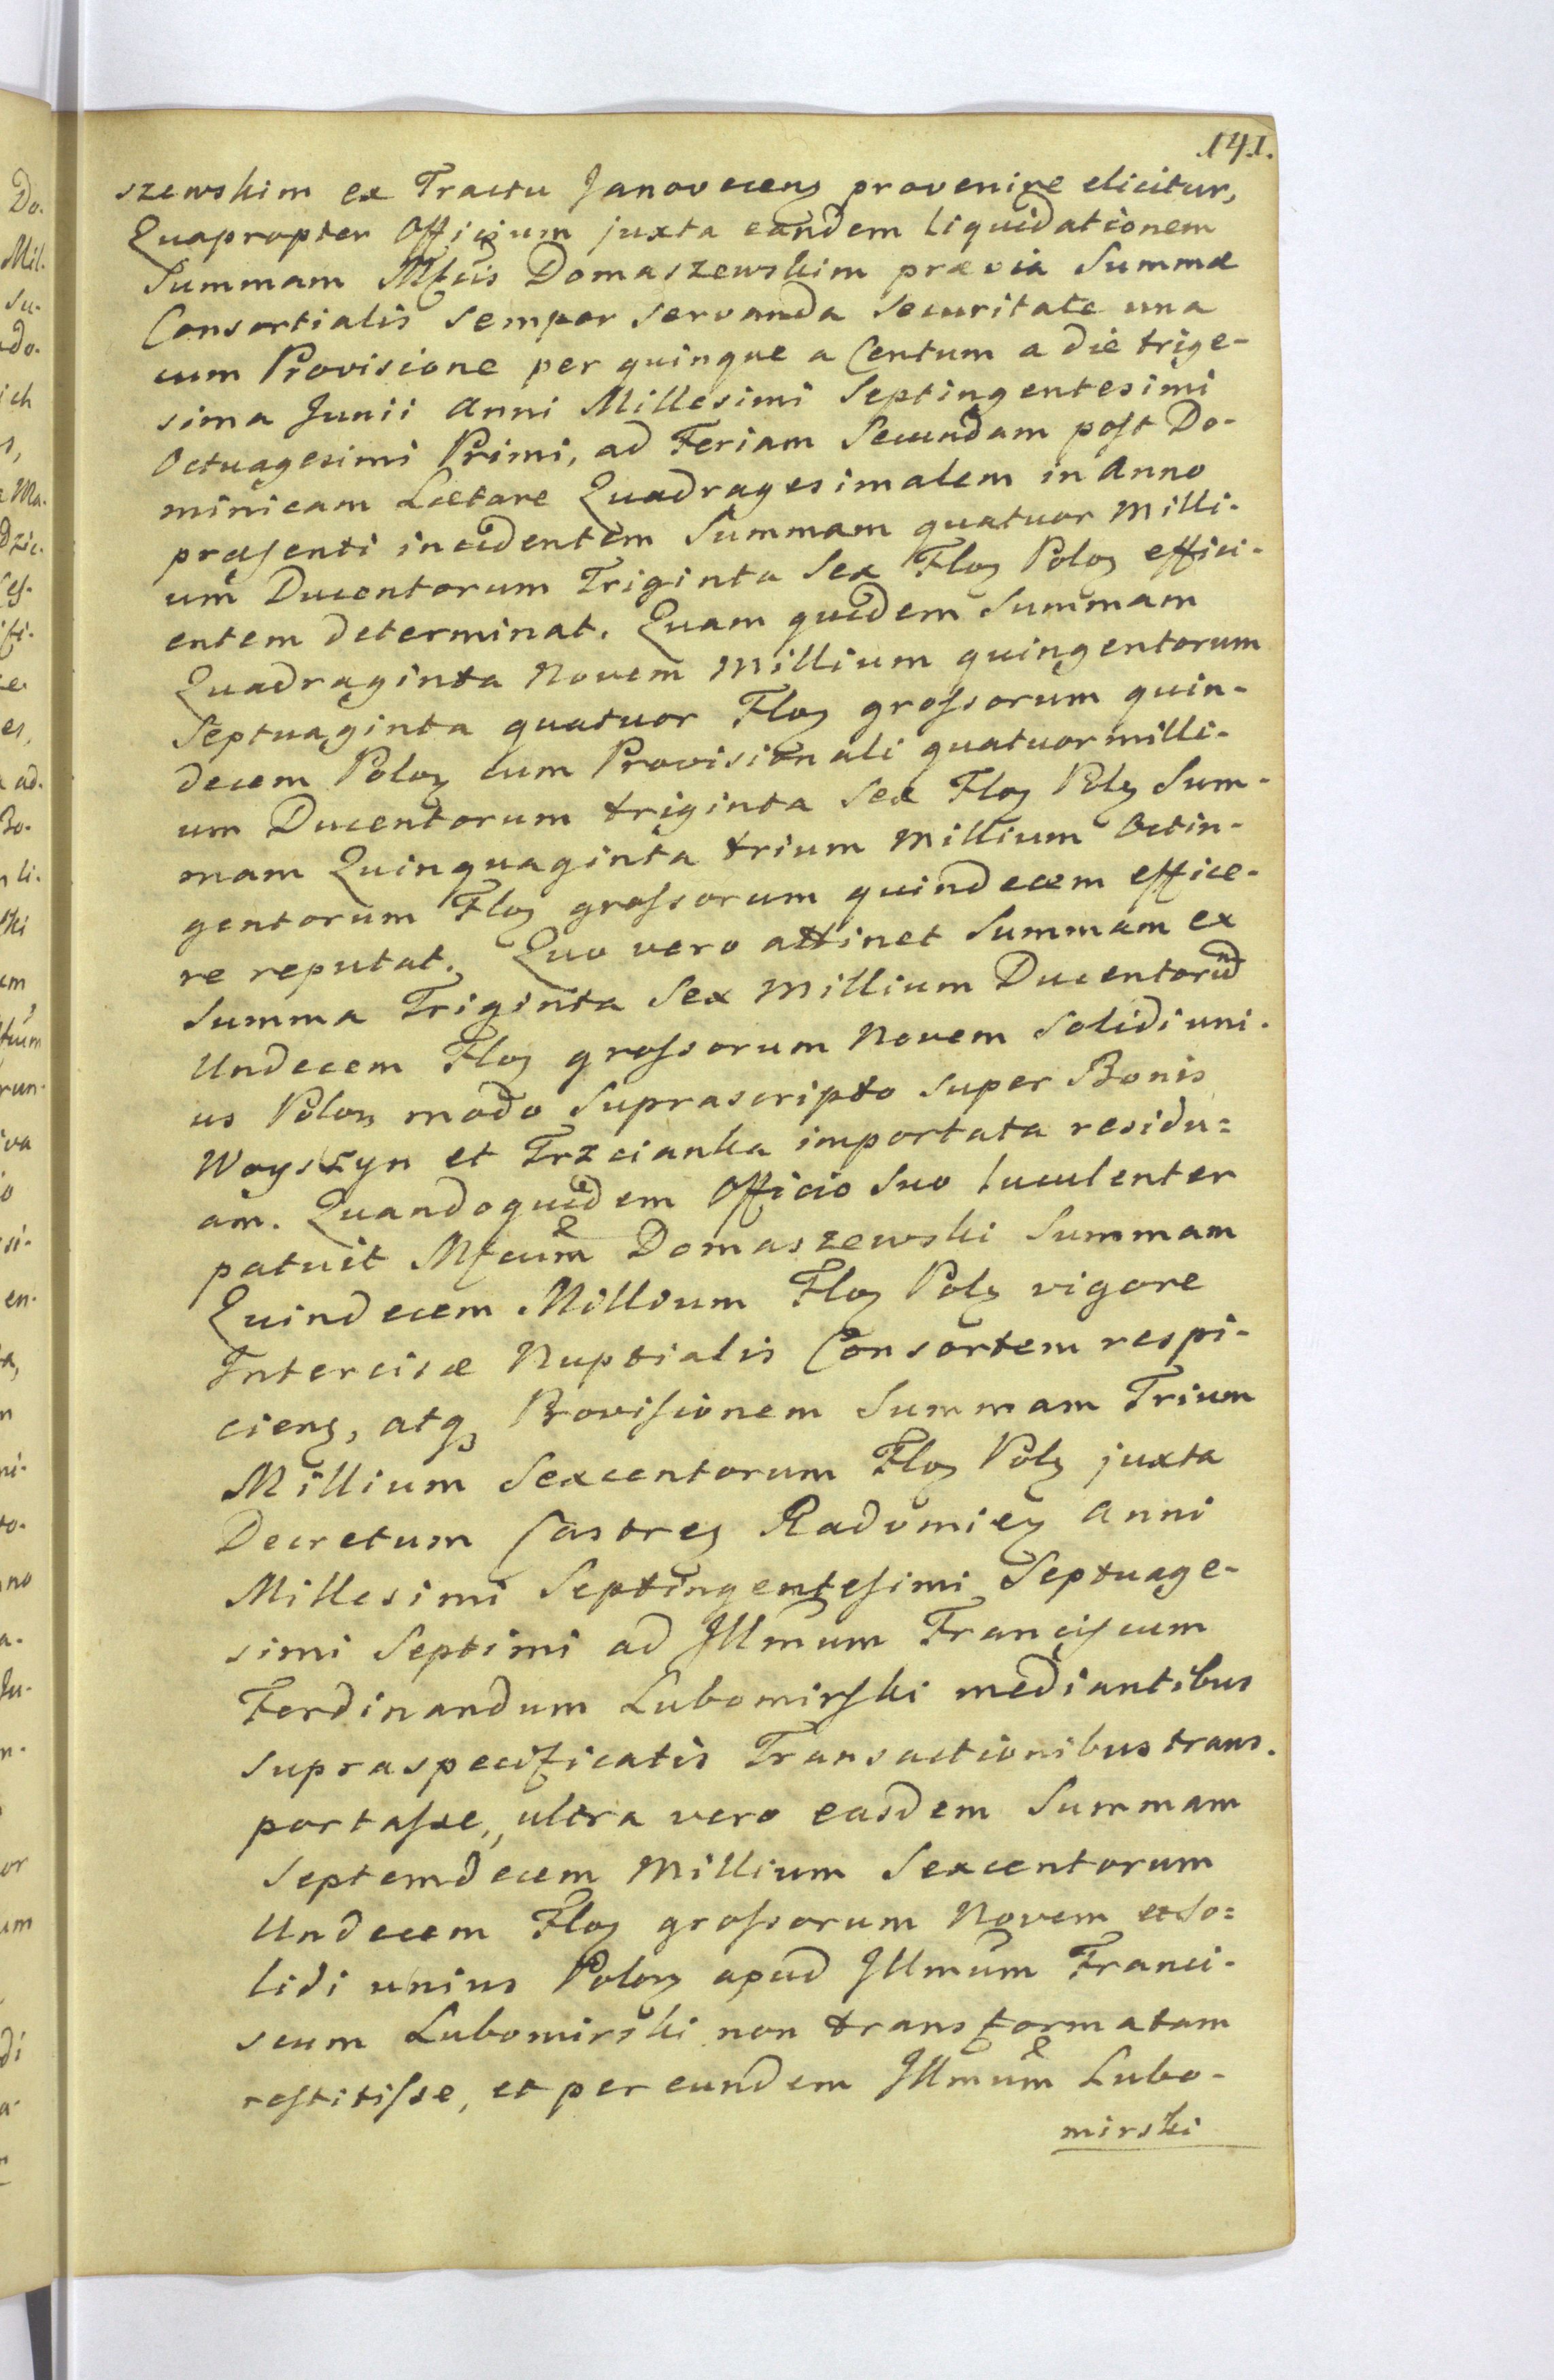 141.
szewskim ex Tractu Janoveceng provenire elicitur,
Quapropter Officium juxta eandem liquidationem
Summam Mfcis Domaszewskim prævia Summæ
Consortialis semper servanda securitate una
cum Provisione per quinque a Centum a die trige-
sima Junii Anni Millesimi Septingentesimi
Octuagesimi Primi, ad Feriam Secundam post Do-
minicam Lætare Quadragesimalem in Anno
præsenti incidentem Summam quatuor Milli-
um Ducentorum Triginta Sex Flor Polor effici-
entem determinat. Quam quidem Summam
Quadraginta Novem Millium quingentorum
Septuaginta quatuor Flor grossorum quin-
decem Polor cum Provisionali quatuor milli-
um Ducentorum triginta Sex Flor Pol Sum-
mam Quinquaginta trium Millium Octin-
gentorum Flor grossorum quindecem effice-
re reputat. Quo vero attinet Summam ex
Summa Triginta Sex Millium Ducentorum
Undecem Flor grossorum Novem Solidi uni-
us Polon modo Suprascripto super Bonis
Woyszyn et Trzcianka importata residu=
am. Quandoquidem Officio Suo luculenter
patuit Mfcum Domaszewski Summam
Quindecem Millium Flor Pol vigore
Intercisæ Nuptialis Consortem respi-
cieng, atq Provisionem Summam Trium
Millium Sexcentorum Flor Pol juxta
Decretum Castreg Radomieg Anni
Millesimi Septingentesimi Septuage-
simi Septimi ad Illmum Franciscum
Ferdinandum Lubomirski mediantibus
supraspecificatis Transactionibus trans-
portasse, ultra vero easdem Summam
Septemdecem Millium Sexcentorum
Undecem Flor grossorum Novem et So=
lidi unius Polon apud Illmum Franci-
scum Lubomirski non transformatam
restitisse, et per eundem Illmum Lubo-
mirski